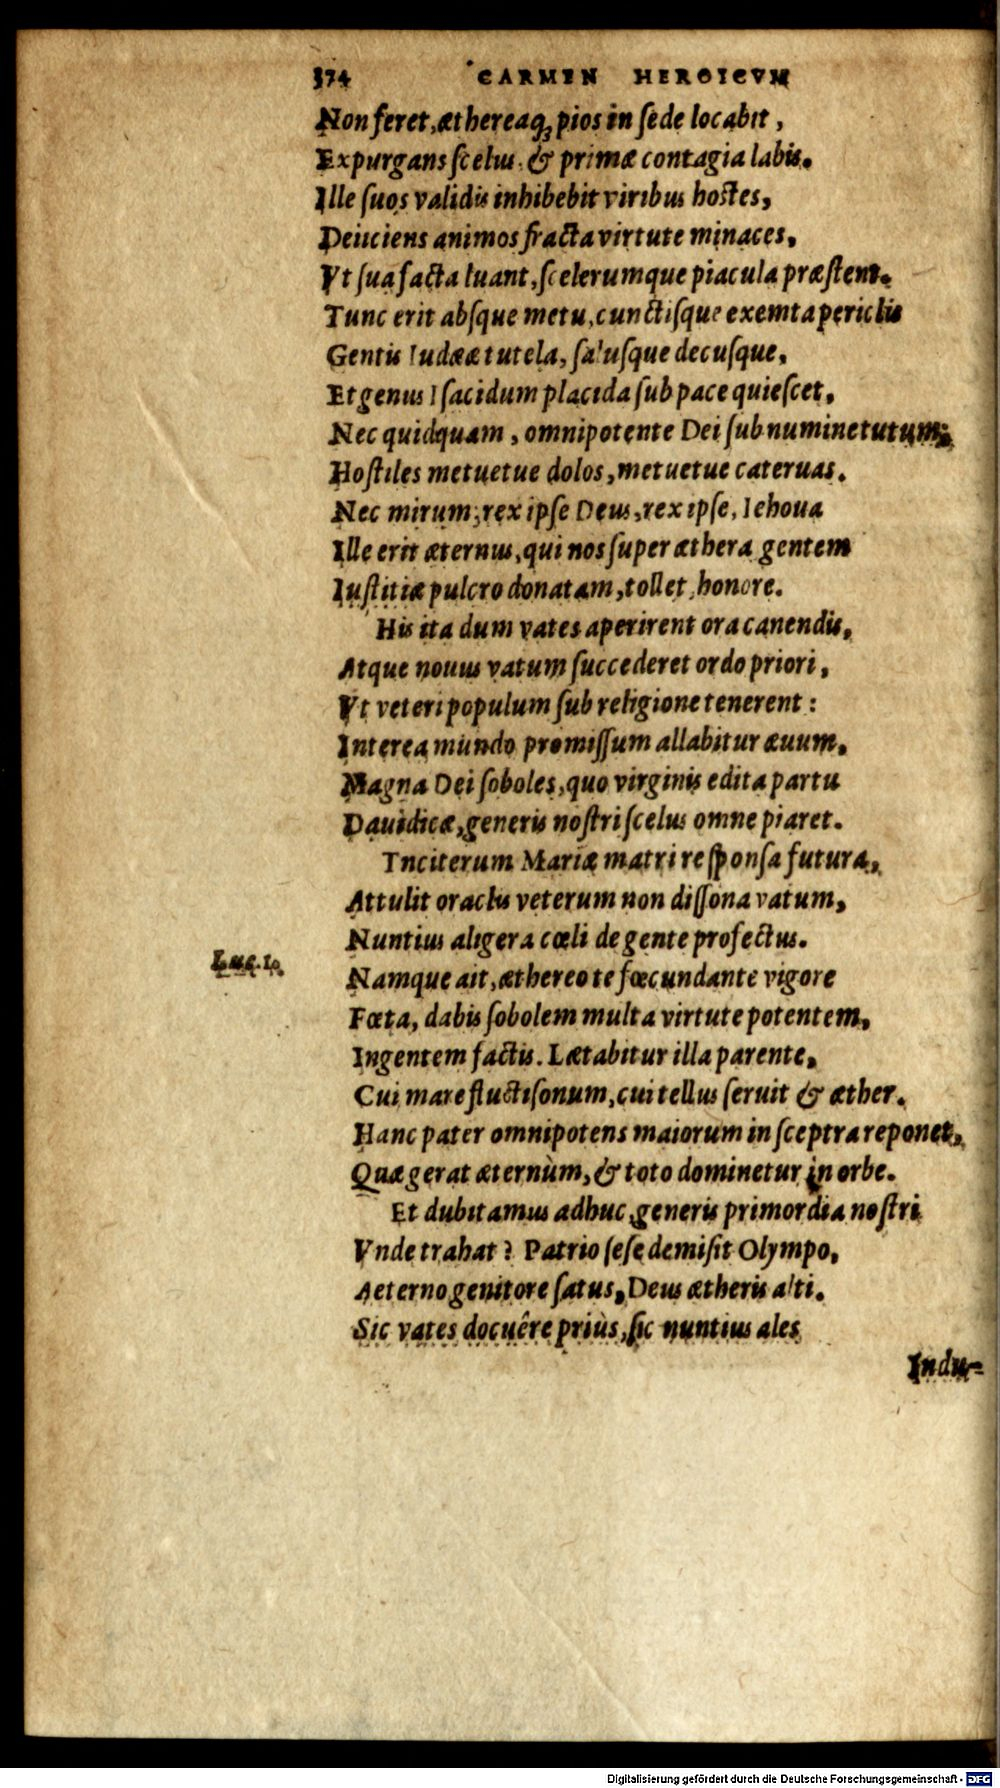 374 CARMEN HEROICVM
Non feret, æthereaq; pios in ſede locabit,
Expurgans ſcelus & primæ contagia labis.
Ille ſuos validis inhibebit viribus hostes,
Deiiciens animos fracta virtute minaces,
Vt ſua facta luant, ſcelerumque piacula præſtent.
Tunc erit abſque metu, cunctiſque exemta periclis
Gentis Iudææ tutela, ſaluſque decuſque,
Et genus Iſacidum placida ſub pace quieſcet,
Nec quidquam, omnipotente Dei ſub numine tutum,
Hoſtiles metuetue dolos, metuetue cateruas.
Nec mirum; rex ipſe Deus, rex ipſe, Iehoua
Ille erit æternus, qui nos ſuper æthera gentem
Iuſtitiæ pulcro donatam, tollet, honore.
His ita dum vates aperirent ora canendis,
Atque nouus vatum ſuccederet ordo priori,
Vt veteri populum ſub religione tenerent:
Interea mundo promiſſum allabitur æuum,
Magna Dei ſoboles, quo virginis edita partu
Dauidicæ, generis noſtri ſcelus omne piaret.
Tnciterum Mariæ matri reſponſa futura,
Attulit oraclis veterum non diſſona vatum,
Nuntius aligera cœli de gente profectus.
Luc. 1.
Namque ait, æthereo te fœcundante vigore
Fœta, dabis ſobolem multa virtute potentem,
Ingentem factis. Lætabitur illa parente,
Cui mare fluctiſonum, cui tellus ſeruit & æther.
Hanc pater omnipotens maiorum in ſceptra reponet,
Quæ gerat æternùm, & toto dominetur in orbe.
Et dubitamus adhuc, generis primordia noſtri
Vnde trahat? Patrio ſeſe demiſit Olympo,
Aeterno genitore ſatus, Deus ætheris alti.
Sic vates docuêre priùs, ſic nuntius ales
Indu-
Digitalisierung gefördert durch die Deutsche Forschungsgemeinschaft - DFG